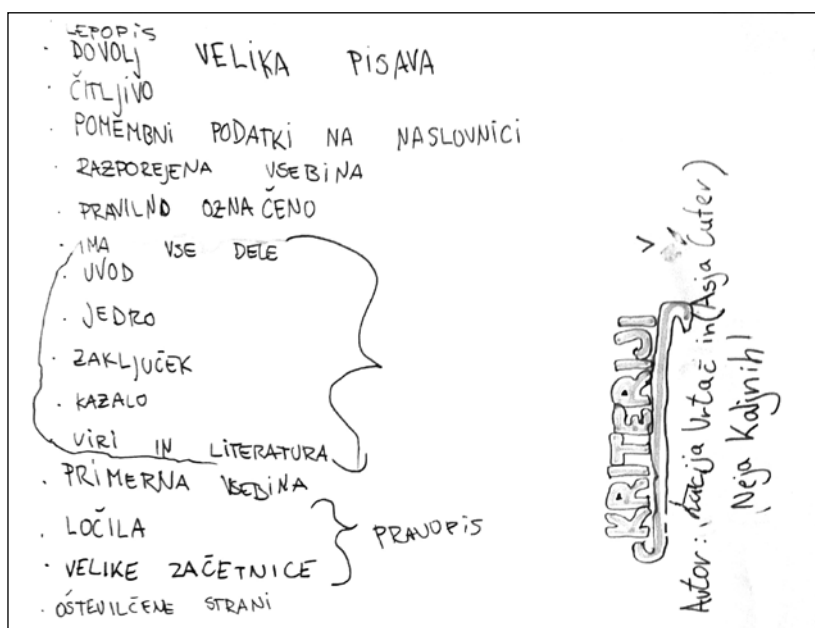 LEPOPIS
· DOVOLJ VELIKA PISAVA
· ČITLJIVO
· POMEMBNI PODATKI NA NASLOVNICI
· RAZPOREJENA VSEBINA
· PRAVILNO OZNAČENO
· IMA VSE DELE
· UVOD
· JEDRO
· ZAKLJUČEK
· KAZALO
VIRI IN LITERATURA
· PRIMERNA VSEBINA
· LOČILA
· VELIKE ZAČETNICE
PRAVOPIS
· OŠTEVILČENE STRANI
KRITERIJI
Avtor: Lucija Vrtač in (Asja Čufer)
Neja Kaljnih